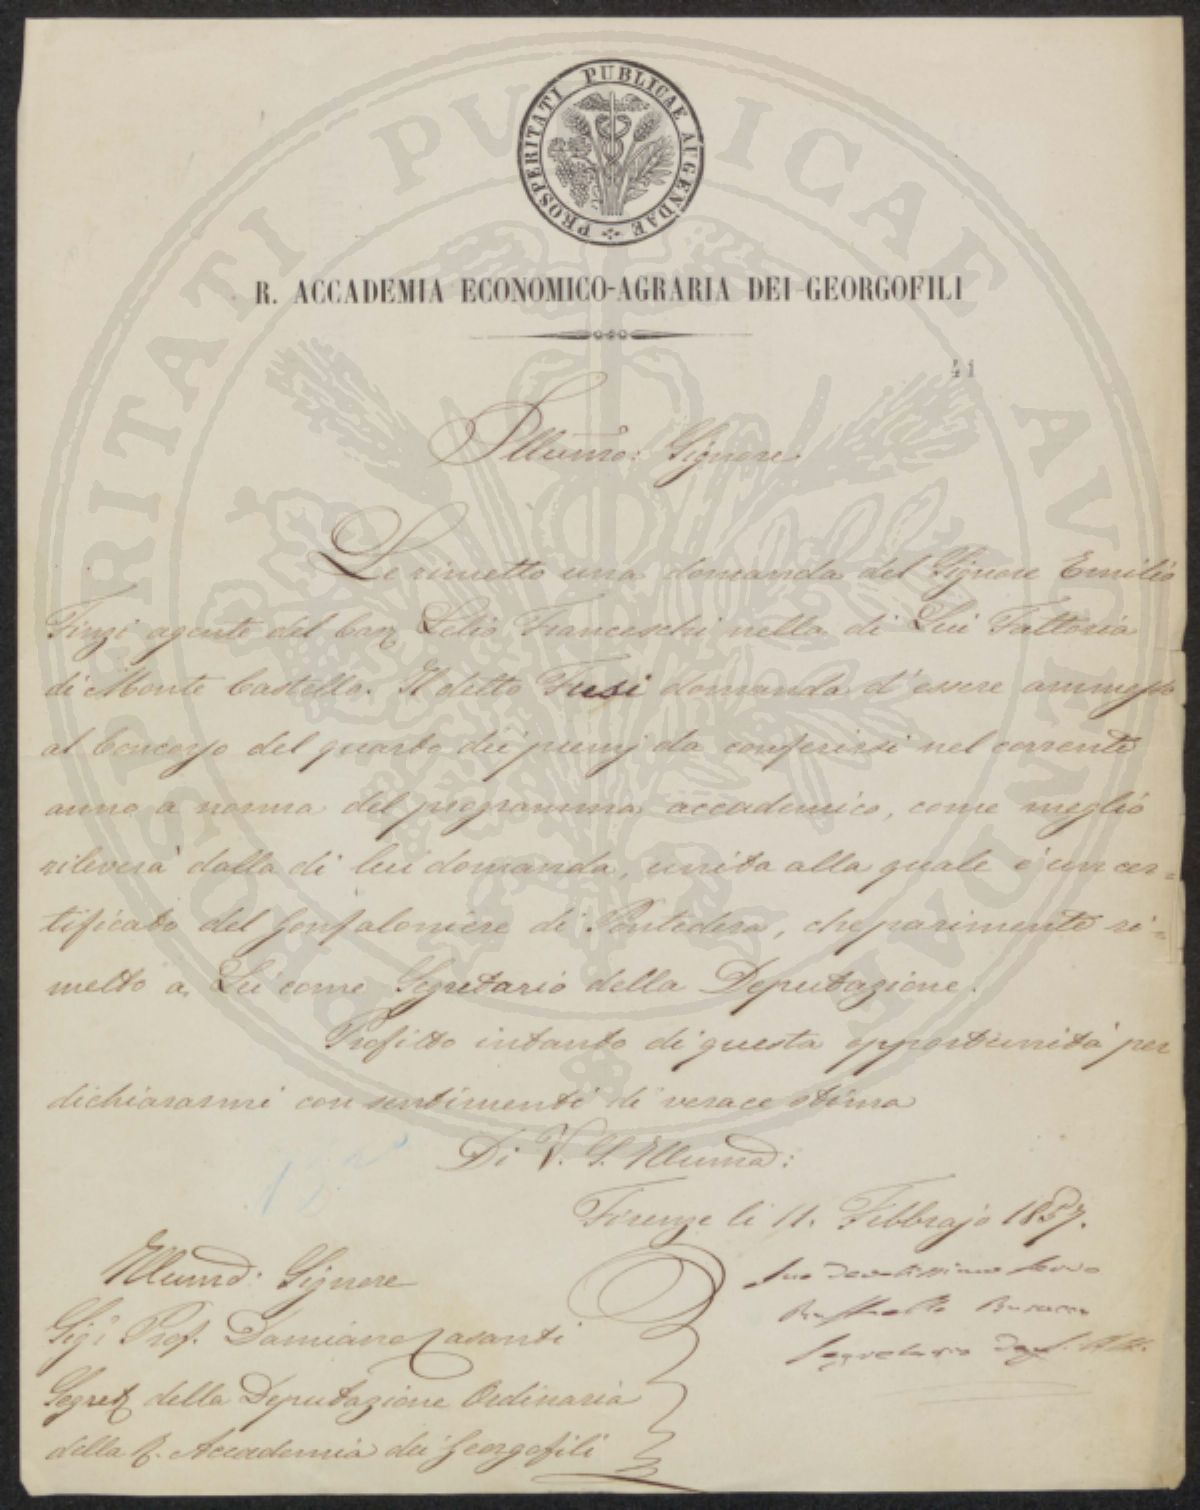 PROSPERITATI PUBLICAE AUGENDAE
R. ACCADEMIA ECONOMICO-AGRARIA DEI GEORGOFILI
41
Illumo: Signore
Le rimetto una domanda del Signore Emilio
Finzi agente del Cav. Lelio Franceschi nella di Lui Fattoria
di Monte Castello. Il detto Fusi domanda d'essere ammesso
al Concorso del quarto dei premj da conferirsi nel corrente
anno a norma del programma accademico, come meglio
rileverà dalla di lui domanda, unita alla quale è un cer=
tificato del Gonfaloniere di Pontedera, che parimente ri=
metto a Lei come Segretario della Deputazione.
Profitto intanto di questa opportunità per
dichiararmi con sentimenti di verace stima
Di V. S. Illuma:
Firenze li 11. Febbrajo 1857.
Suo Devotissimo Servo
Raffaello Busacca
Segretario degli Atti.
Illumo: Signore
Sigr. Prof. Damiano Casanti
Segret. della Deputazione Ordinaria
della R. Accademia dei Georgofili